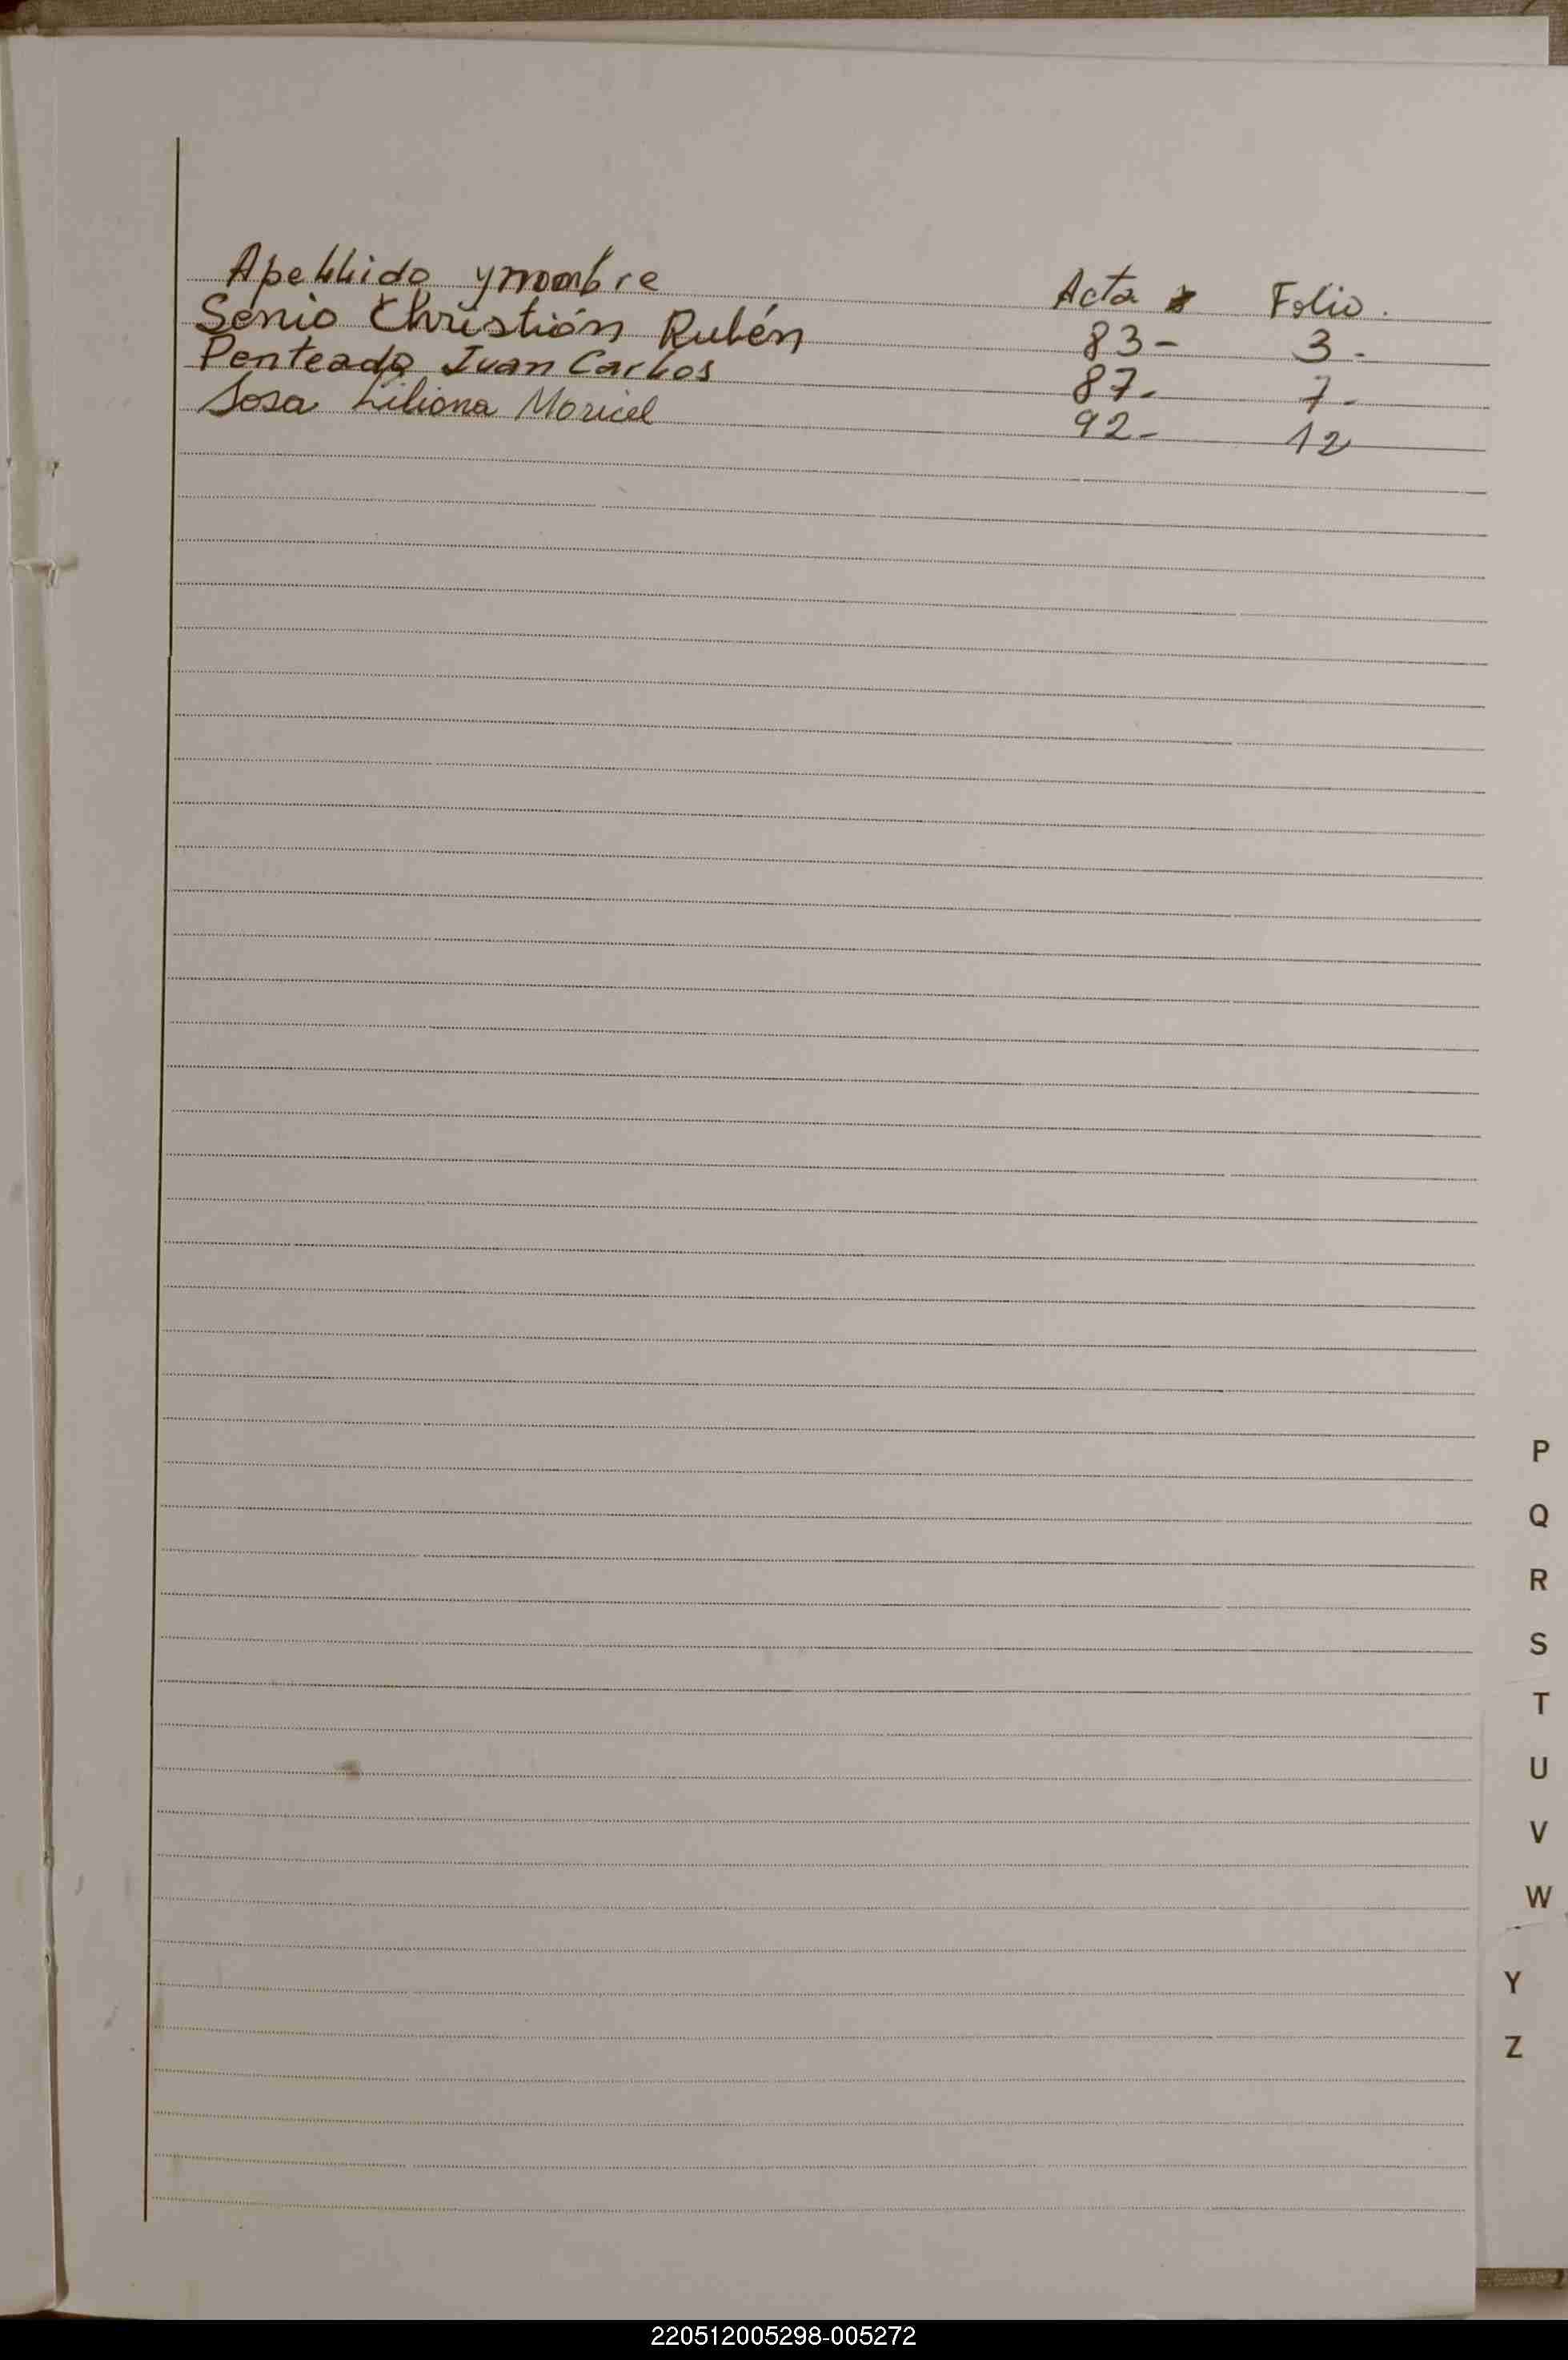 Apellido y nombre Acta Folio.
Senio Christián Rubén 83- 3-
Penteado Juan Carlos 87- 7-
Sosa Liliana Maricel 92- 12
P
Q
R
S
T
U
V
W
Y
Z
220512005298-005272